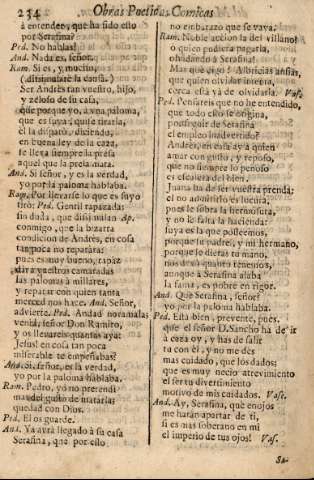 234 Obras Poeticas Comicas
à entender, que ha sido esto
por Serafina?
Ped. No hablas?
And. Nada es, señor,
Ram. Si es, y mucho,
(dissimularè la causa.)
Ser Andrès tan vuestro, hijo,
y zeloso de su casa,
que porque yo, à vna paloma,
que es suya, quise tirarla,
èl la disparò, diziendo,
en buena ley de la caza,
se lleva siempre la presa
aquel que la presa mata.
And. Si señor, y es la verdad,
yo por la paloma hablaba.
Ram. Por llevarse lo que es suyo
tirò: Ped. Gentil rapazada:
sin duda, que dissimulan Ap.
conmigo, que la bizarra
condicion de Andrès, en cosa
tan poca no reparàra:
pues es muy bueno, rapaz
à vuestros camaradas
las palomas à millares,
y reparar con quien tanta
merced nos haze. And. Señor,
advierte. Ped. Andad noramalas
venid, señor Don Ramiro,
y os llevareis quantas aya:
Jesus! en cosa tan poca
miserable te empeñabas?
And. Si, señor, es la verdad,
yo por la paloma hablaba.
Ram. Pedro, yo no pretendi
mas del gusto de matarla:
quedad con Dios.
Ped. El os guarde.
And. Ya avrà llegado à su casa
Serafina, que por ello
no embarazo que se vaya.
Ram. Noble accion la del villano!
o quien pudiera pagarla,
olvidando à Serafina!
Mas què digo? Albricias ansias,
que quien olvidar intenta,
cerca està yà de olvidarla. Vase.
Ped. Pensareis que no he entendido,
que todo esto se origina,
por seguir de Serafina
el empleo inadvertido?
Andrès, en casa ay à quien
amar con gusto, y reposo,
que no siempre lo penoso
es escalera del bien.
Juana ha de ser vuestra prenda;
el no admitirlo es locura,
pues le sobra la hermosura,
y no le falta la hacienda:
suya es la que posseemos,
porque su padre, y mi hermano,
porque le dieras tu mano,
nos dexò quanto tenemos,
aunque à Serafina alaba
la fama, es pobre en rigor.
And. Que Serafina, señor?
yo por la paloma hablaba.
Ped. Està bien, prevente, pues,
que el señor D. Sancho ha de ir
à caza oy, y has de salir
tu con èl, y no me dès
mas cuidado, que los dados:
que es muy necio atrevimiento
el ser tu divertimiento
motivo de mis cuidados. Vase.
And. Ay, Serafina, què enojos
me haràn apartar de ti,
si es mas soberano en mi
el imperio de tus ojos! Vase.
Sa-